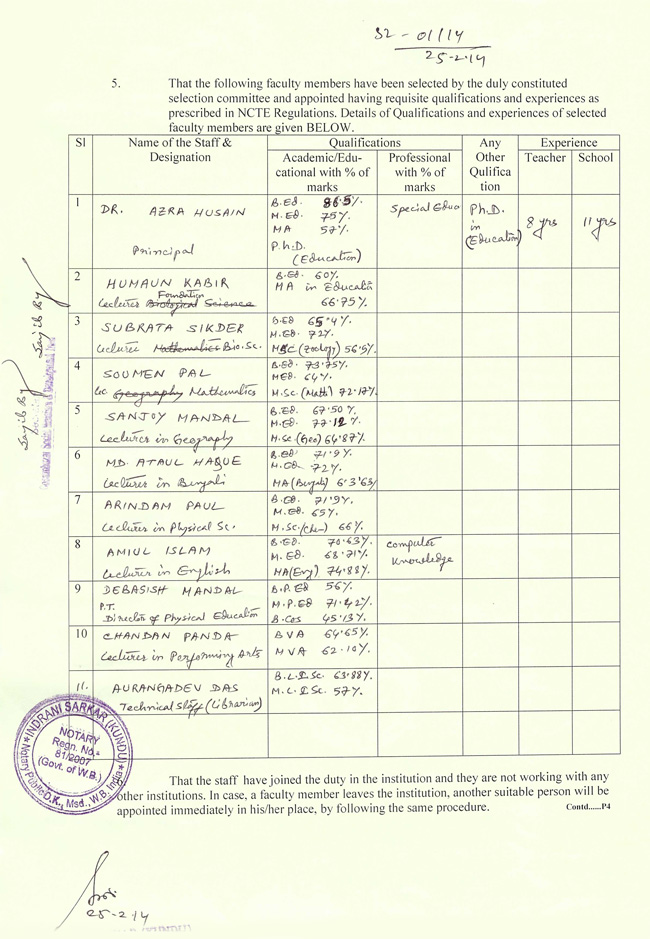 S2 - 01/14
25-2-14
5. That the following faculty members have been selected by the duly constituted
selection committee and appointed having requisite qualifications and experiences as
prescribed in NCTE Regulations. Details of Qualifications and experiences of selected
faculty members are given BELOW.
Sl Name of the Staff & Designation Qualifications Any Other Qulifica tion Experience
Academic/Edu-cational with % of marks Professional with % of marks Teacher School
1 DR. AZRA HUSAIN B.Ed. 86.5% Special Educa Ph.D. in (Education) 8 yrs 11 yrs
M.Ed. 75%
MA 57%
Principal P.h.D. (Education)
2 HUMAUN KABIR B.Ed. 60%
Foundation MA in Education
Lecturer Biological Science 66.75%
3 SUBRATA SIKDER B.Ed 65.4%
M.Ed. 72%
Lecturer Mathematics Bio.Sc. MSC (Zoology) 56.5%
4 SOUMEN PAL B.Ed. 73.75%
MEd. 64%
Lec. Geography Mathematics M.Sc. (Math) 72.17%
5 SANJOY MANDAL B.Ed. 67.50%
M.Ed. 77.12%
Lecturer in Geography M.Sc (Geo) 64.87%
6 MD. ATAUL HAQUE B.Ed 71.9%
M.Ed. 72%
Lecturer in Bengali MA (Bengali) 63.63%
7 ARINDAM PAUL B.Ed. 71.9%
M.Ed. 65%
Lecturer in Physical Sc. M.Sc. (Chem) 66%
8 AMIUL ISLAM B.Ed. 70.63% Computer Knowledge
M. Ed. 68.71%
Lecturer in English MA (Eng) 74.88%
9 DEBASISH MANDAL B.P.Ed 56%
P.T. M.P.Ed 71.42%
Director of Physical Education B.Cos 45.13%
10 CHANDAN PANDA BVA 64.65%
Lecturer in Performing Arts MVA 62.10%
11. AURANGADEV DAS B.L.I.Sc. 63.88%
Technical Staff (Librarian) M.L.I.Sc. 57%
INDRANI SARKAR (KUNDU)
NOTARY
Regn. No.-
81/2007
(Govt. of W.B.)
Notary Public D.K., Msd., W.B. India
6. That the staff have joined the duty in the institution and they are not working with any
other institutions. In case, a faculty member leaves the institution, another suitable person will be
appointed immediately in his/her place, by following the same procedure. Contd......P4
25-2-14